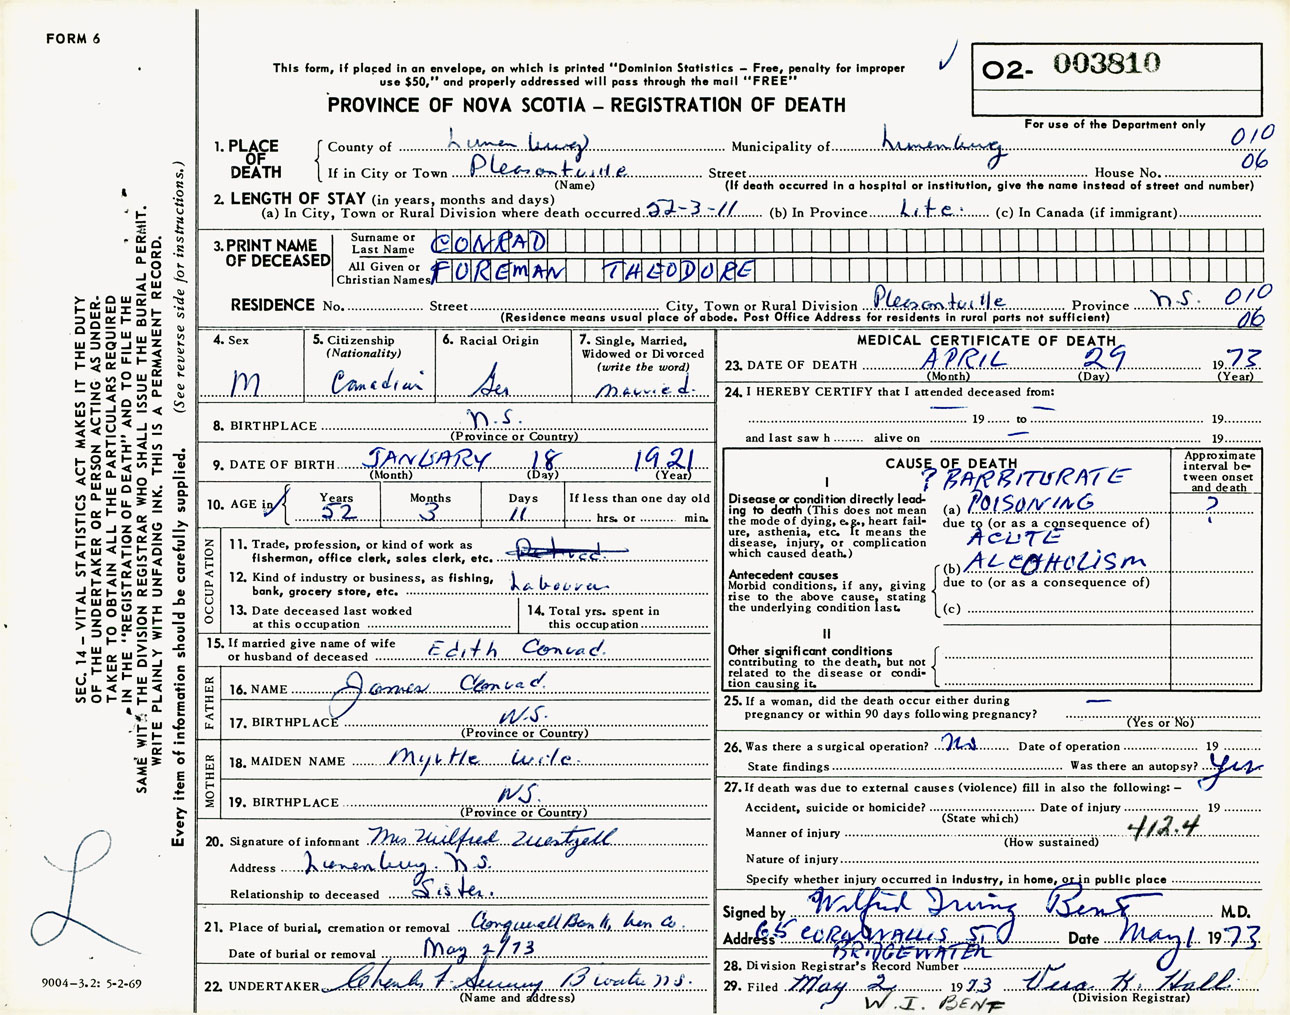 FORM 6
This form, if placed in an envelope, on which is printed "Dominion Statistics – Free, penalty for improper
use $50," and properly addressed will pass through the mail "FREE"
PROVINCE OF NOVA SCOTIA – REGISTRATION OF DEATH
O2- 003810
For use of the Department only
1. PLACE OF DEATH
County of Lunenburg Municipality of Lunenburg 010
If in City or Town Pleasantville Street House No. 06
(Name) (If death occurred in a hospital or institution, give the name instead of street and number)
2. LENGTH OF STAY (in years, months and days)
(a) In City, Town or Rural Division where death occurred 52-3-11 (b) In Province Life. (c) In Canada (if immigrant)
3. PRINT NAME OF DECEASED
Surname or Last Name CONRAD
All Given or Christian Names FOREMAN THEODORE
RESIDENCE No. Street City, Town or Rural Division Pleasantville Province N.S. 010
(Residence means usual place of abode. Post Office Address for residents in rural parts not sufficient) 06
4. Sex
M
5. Citizenship
(Nationality)
Canadian
6. Racial Origin
Ger
7. Single, Married,
Widowed or Divorced
(write the word)
Married.
8. BIRTHPLACE N.S.
(Province or Country)
9. DATE OF BIRTH JANUARY 18 1921
(Month) (Day) (Year)
10. AGE in
Years Months Days If less than one day old
52 3 11 hrs. or min.
OCCUPATION
11. Trade, profession, or kind of work as
fisherman, office clerk, sales clerk, etc.
12. Kind of industry or business, as fishing,
bank, grocery store, etc. Labourer
13. Date deceased last worked
at this occupation
14. Total yrs. spent in
this occupation
15. If married give name of wife
or husband of deceased Edith Conrad.
FATHER
16. NAME James Conrad.
17. BIRTHPLACE N.S.
(Province or Country)
MOTHER
18. MAIDEN NAME Myrtle Wile.
19. BIRTHPLACE N.S.
(Province or Country)
20. Signature of informant Mrs Wilfred Wentzell
Address Lunenburg. N.S.
Relationship to deceased Sister.
21. Place of burial, cremation or removal Conquerall Bank, Lun Co.
Date of burial or removal May 2/73
22. UNDERTAKER Charles F. B'water N.S.
(Name and address)
MEDICAL CERTIFICATE OF DEATH
23. DATE OF DEATH APRIL 29 1973
(Month) (Day) (Year)
24. I HEREBY CERTIFY that I attended deceased from:
— 19 to — 19
and last saw h alive on — 19
CAUSE OF DEATH
Approximate
interval be-
tween onset
and death
I
Disease or condition directly lead-
ing to death (This does not mean
the mode of dying, e.g., heart fail-
ure, asthenia, etc. It means the
disease, injury, or complication
which caused death.)
? BARBITURATE
(a) POISONING ?
due to (or as a consequence of)
ACUTE
Antecedent causes
Morbid conditions, if any, giving
rise to the above cause, stating
the underlying condition last.
(b) ALCOHOLISM
due to (or as a consequence of)
(c)
II
Other significant conditions
contributing to the death, but not
related to the disease or condi-
tion causing it.
25. If a woman, did the death occur either during
pregnancy or within 90 days following pregnancy? —
(Yes or No)
26. Was there a surgical operation? No Date of operation 19
State findings Was there an autopsy? Yes
27. If death was due to external causes (violence) fill in also the following: –
Accident, suicide or homicide? Date of injury 19
(State which)
Manner of injury 412.4
(How sustained)
Nature of injury
Specify whether injury occurred in industry, in home, or in public place
Signed by Wilfrid Irving Bent M.D.
Address 65 CORNWALLIS ST Date May 1 1973
BRIDGEWATER
28. Division Registrar's Record Number
29. Filed May 2 1973 Vera K. Hall
(Division Registrar)
W. I. BENT
SEC. 14 – VITAL STATISTICS ACT MAKES IT THE DUTY
OF THE UNDERTAKER OR PERSON ACTING AS UNDER-
TAKER TO OBTAIN ALL THE PARTICULARS REQUIRED
IN THE "REGISTRATION OF DEATH" AND TO FILE THE
SAME WITH THE DIVISION REGISTRAR WHO SHALL ISSUE THE BURIAL PERMIT.
WRITE PLAINLY WITH UNFADING INK. THIS IS A PERMANENT RECORD.
Every item of information should be carefully supplied. (See reverse side for instructions.)
L
9004-3.2: 5-2-69